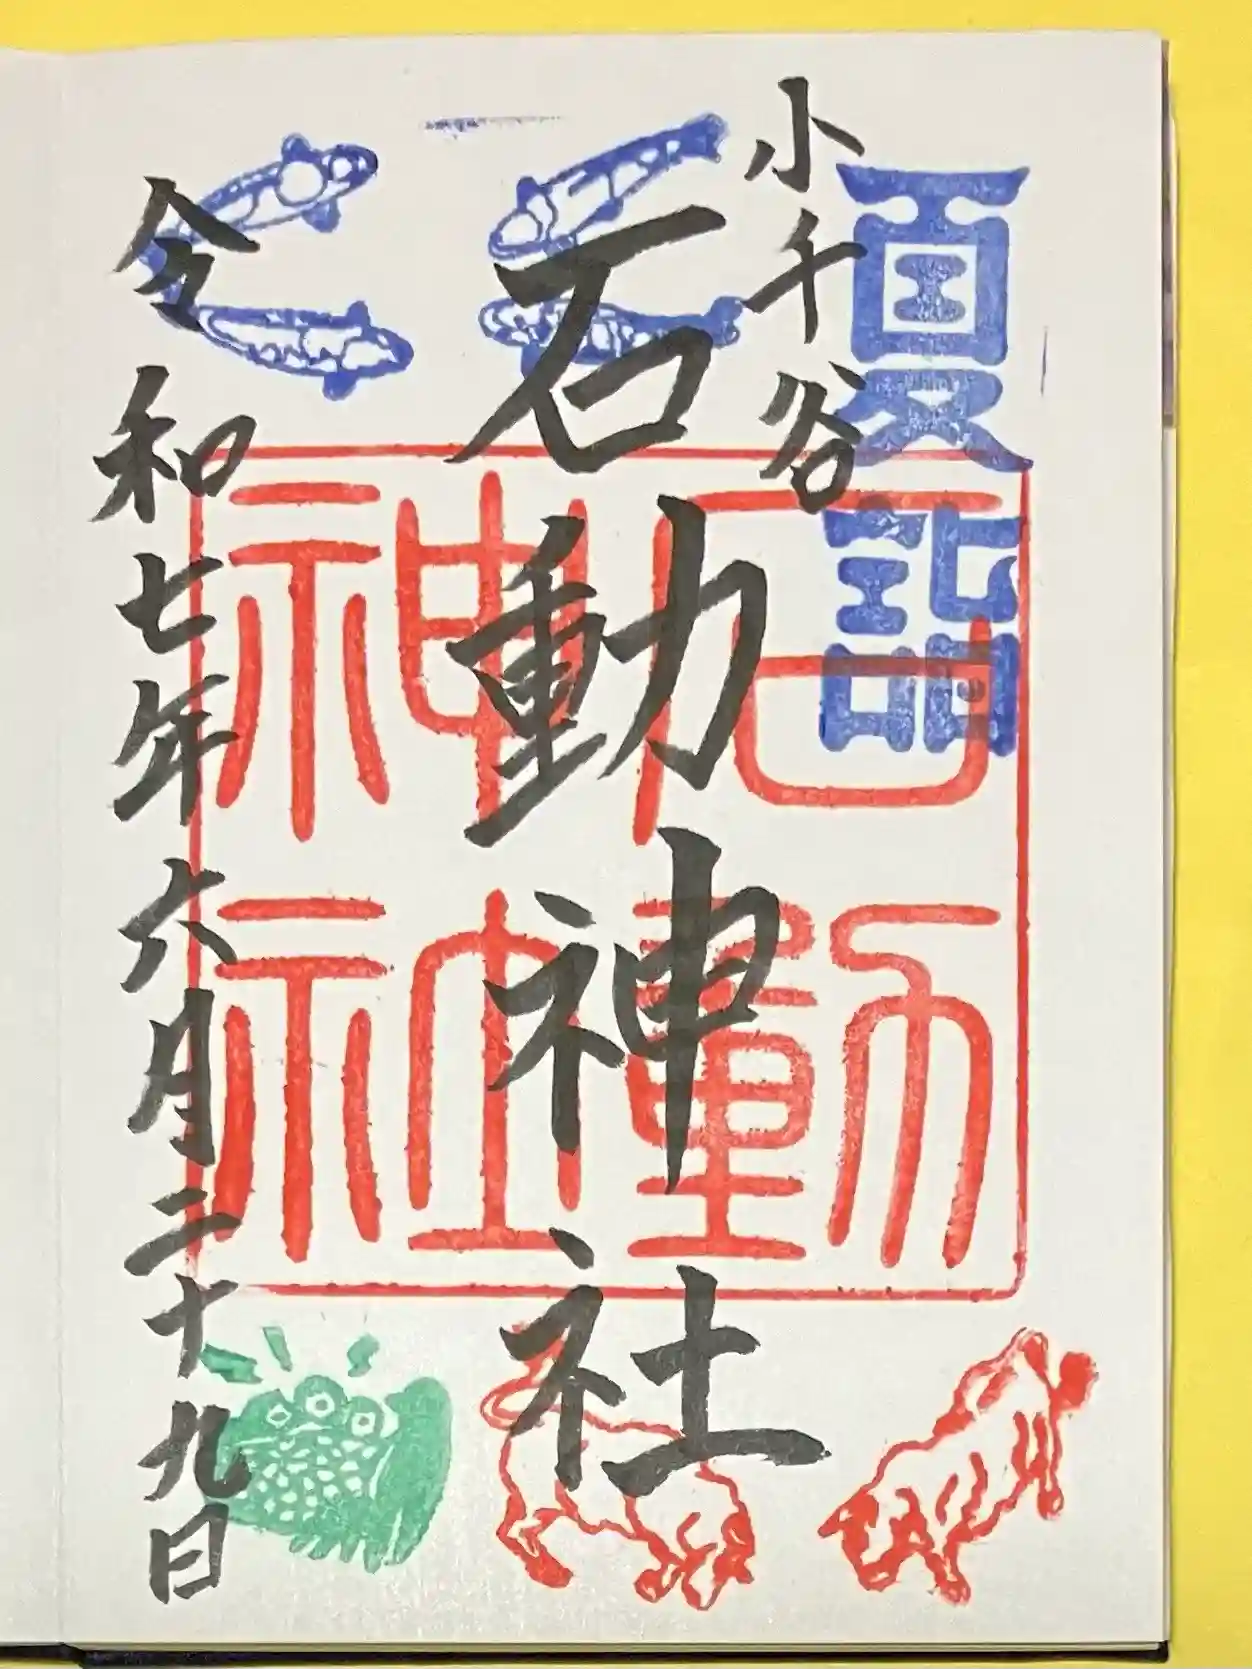 夏詣
小千谷
石動神社
石動
神社
令和七年六月二十九日